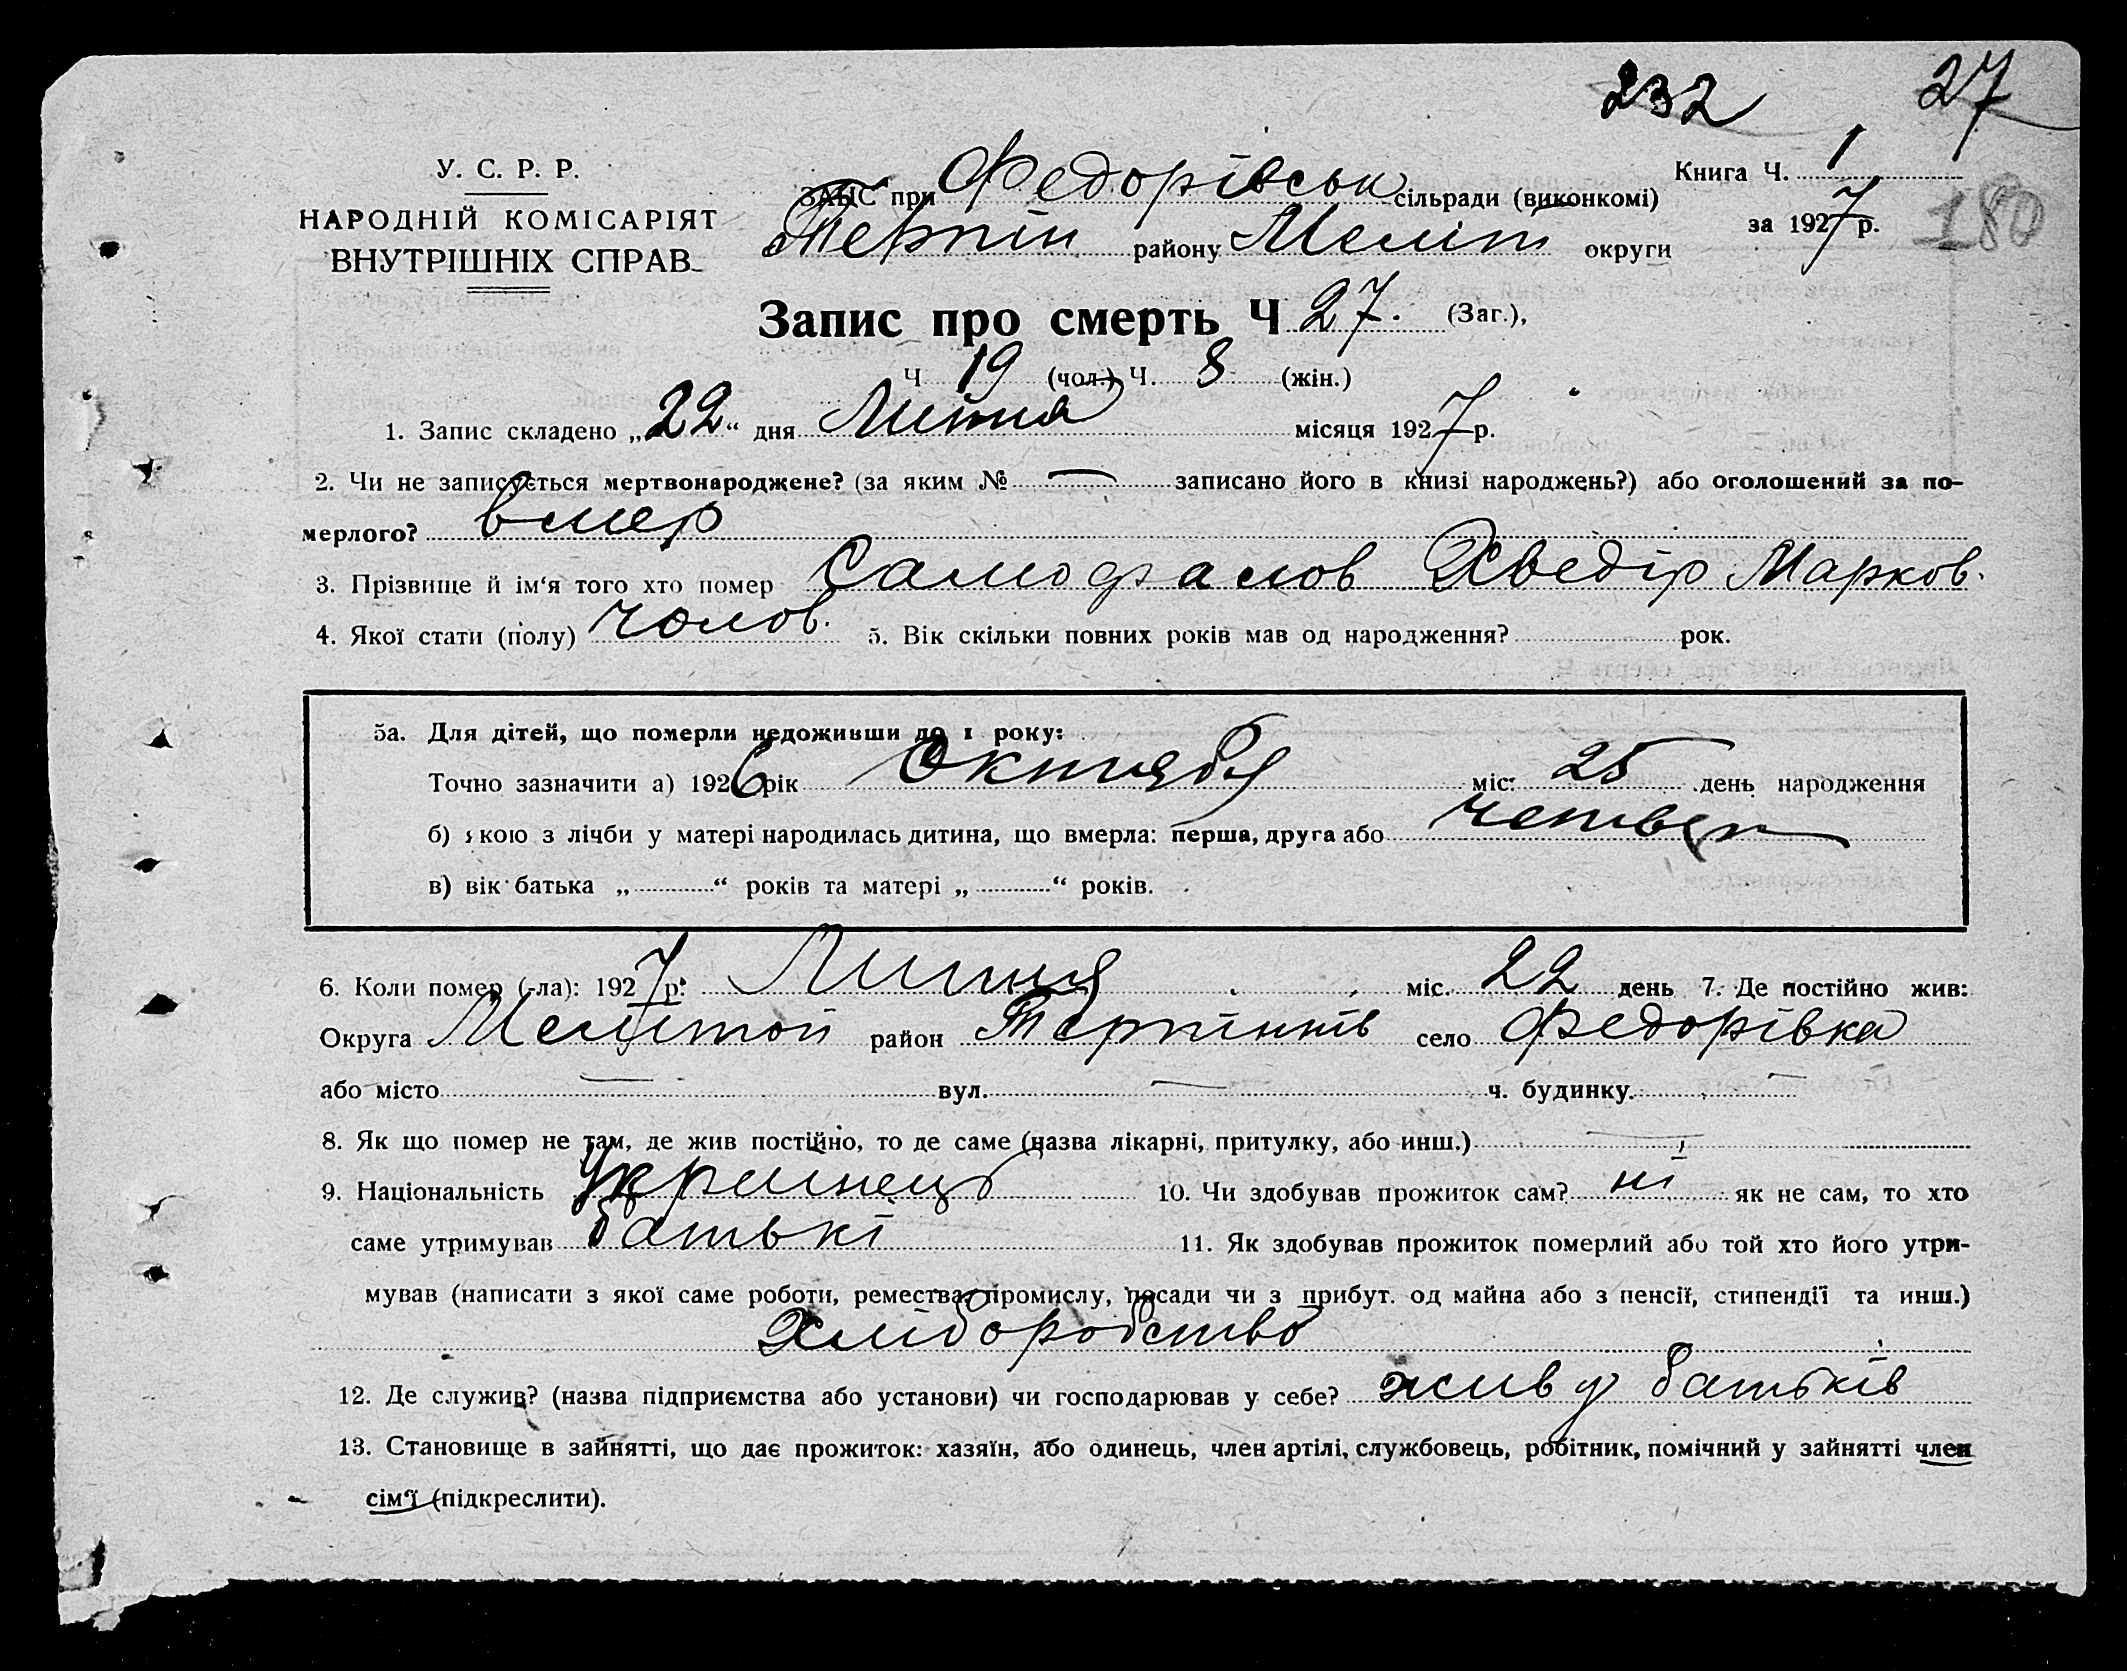 232 27
У. С. Р. Р.
НАРОДНІЙ КОМІСАРІЯТ
ВНУТРІШНІХ СПРАВ
Книга Ч. 1
за 1927 р.
180
ЗАГС при Федорівськ сільради (виконкомі)
Терпін району Меліт округи
Запис про смерть Ч 27. (Заг.),
Ч 19 (чол.) Ч. 8 (жін.)
1. Запис складено „22“ дня Липня місяця 1927 р.
2. Чи не записується мертвонароджене? (за яким № — записано його в книзі народжень?) або оголошений за по-
мерлого? вмер
3. Прізвище й ім‘я того хто помер Самофалов Хведір Марков.
4. Якої стати (полу) чолов. 5. Вік скільки повних років мав од народження? рок.
5а. Для дітей, що померли недоживши до 1 року:
Точно зазначити а) 1926 рік Октября міс. 25 день народження
б) якою з лічби у матері народилась дитина, що вмерла: перша, друга або четверт
в) вік батька „ “ років та матері „ “ років.
6. Коли помер (-ла): 1927 р. Липня міс. 22 день 7. Де постійно жив:
Округа Мелітоп район Терпіннів село Федорівка
або місто — вул. — ч. будинку. —
8. Як що помер не там, де жив постійно, то де саме (назва лікарні, притулку, або инш.) —
9. Національність Украінець 10. Чи здобував прожиток сам? ні як не сам, то хто
саме утримував батькі 11. Як здобував прожиток померлий або той хто його утри-
мував (написати з якої саме роботи, ремества, промислу, посади чи з прибут. од майна або з пенсії, стипендії та инш.)
Хлібородство
12. Де служив? (назва підприємства або установи) чи господарював у себе? жив у батьків
13. Становище в зайнятті, що дає прожиток: хазяїн, або одинець, член артілі, службовець, робітник, помічний у зайнятті член
сім‘ї (підкреслити).